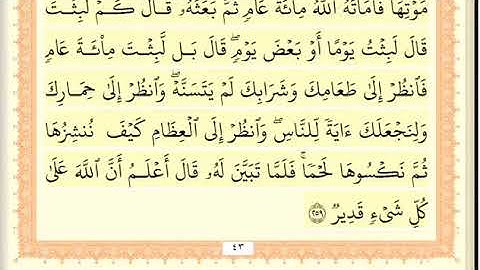 مَوْتِهَا فَأَمَاتَهُ اللَّهُ مِائَةَ عَامٍ ثُمَّ بَعَثَهُۥ قَالَ كَمْ لَبِثْتَ
قَالَ لَبِثْتُ يَوْمًا أَوْ بَعْضَ يَوْمٍۖ قَالَ بَل لَّبِثْتَ مِا۟ئَةَ عَامٍ
فَٱنظُرْ إِلَىٰ طَعَامِكَ وَشَرَابِكَ لَمْ يَتَسَنَّهْۖ وَٱنظُرْ إِلَىٰ حِمَارِكَ
وَلِنَجْعَلَكَ ءَايَةً لِّلنَّاسِۖ وَٱنظُرْ إِلَى ٱلْعِظَامِ كَيْفَ نُنشِزُهَا
ثُمَّ نَكْسُوهَا لَحْمًاۚ فَلَمَّا تَبَيَّنَ لَهُۥ قَالَ أَعْلَمُ أَنَّ ٱللَّهَ عَلَىٰ
كُلِّ شَىْءٍ قَدِيرٌ ٢٥٩
٤٣